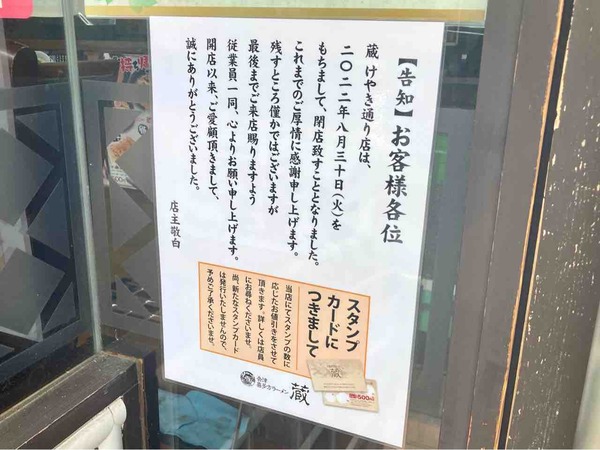 【告知】お客様各位
蔵 けやき通り店は、
二〇二二年八月三十日(火)を
もちまして、閉店致すこととなりました。
これまでのご厚情に感謝申し上げます。
残すところ僅かではございますが
最後までご来店賜りますよう
従業員一同、心よりお願い申し上げます。
開店以来、ご愛顧頂きまして、
誠にありがとうございました。
店主敬白
スタンプ
カードに
つきまして
当店にてスタンプの数に
応じたお値引きをさせて
頂きます。詳しくは店員
にお尋ねくださいませ。
尚、新たなスタンプカード
は発行いたしませんので、
予めご了承くださいませ。
蔵
500
会津
喜多方ラーメン
蔵